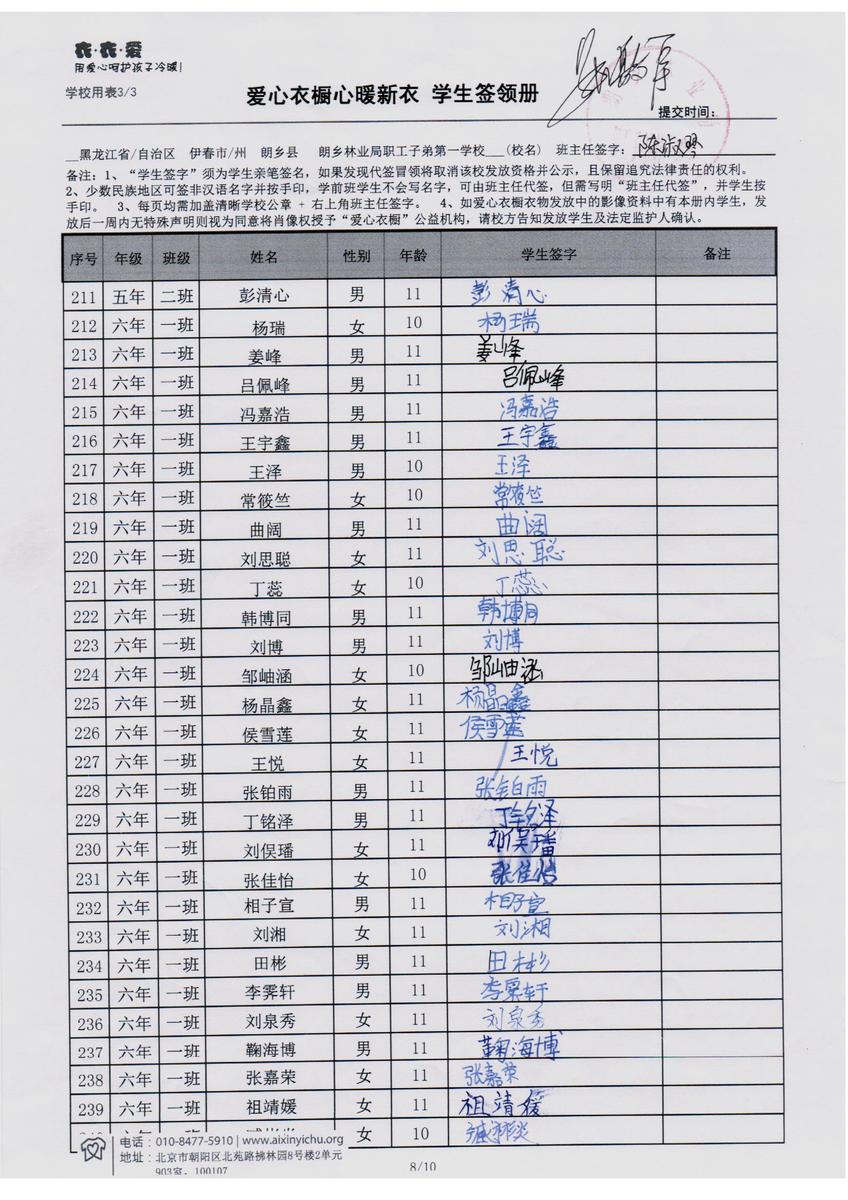 衣·衣·爱
用爱心呵护孩子冷暖!
学校用表3/3
爱心衣橱心暖新衣 学生签领册
提交时间:
__黑龙江省/自治区 伊春市/州 朗乡县 朗乡林业局职工子弟第一学校___(校名) 班主任签字: 陈淑琴
备注: 1、“学生签字”须为学生亲笔签名, 如果发现代签冒领将取消该校发放资格并公示, 且保留追究法律责任的权利。
2、少数民族地区可签非汉语名字并按手印, 学前班学生不会写名字, 可由班主任代签, 但需写明“班主任代签”, 并学生按
手印。 3、每页均需加盖清晰学校公章 + 右上角班主任签字。 4、如爱心衣橱衣物发放中的影像资料中有本册内学生, 发
放后一周内无特殊声明则视为同意将肖像权授予“爱心衣橱”公益机构, 请校方告知发放学生及法定监护人确认。
序号 年级 班级 姓名 性别 年龄 学生签字 备注
211 五年 二班 彭清心 男 11 彭清心
212 六年 一班 杨瑞 女 10 杨瑞
213 六年 一班 姜峰 男 11 姜峰
214 六年 一班 吕佩峰 男 11 吕佩峰
215 六年 一班 冯嘉浩 男 11 冯嘉浩
216 六年 一班 王宇鑫 男 11 王宇鑫
217 六年 一班 王泽 男 10 王泽
218 六年 一班 常筱竺 女 10 常筱竺
219 六年 一班 曲阔 男 11 曲阔
220 六年 一班 刘思聪 女 11 刘思聪
221 六年 一班 丁蕊 女 10 丁蕊
222 六年 一班 韩博同 男 11 韩博同
223 六年 一班 刘博 男 11 刘博
224 六年 一班 邹岫涵 女 10 邹岫涵
225 六年 一班 杨晶鑫 女 11 杨晶鑫
226 六年 一班 侯雪莲 女 11 侯雪莲
227 六年 一班 王悦 女 11 王悦
228 六年 一班 张铂雨 男 11 张铂雨
229 六年 一班 丁铭泽 男 11 丁铭泽
230 六年 一班 刘俣璠 女 11 刘俣璠
231 六年 一班 张佳怡 女 10 张佳怡
232 六年 一班 相子宣 男 11 相子宣
233 六年 一班 刘湘 女 11 刘湘
234 六年 一班 田彬 男 11 田彬
235 六年 一班 李霁轩 男 11 李霁轩
236 六年 一班 刘泉秀 女 11 刘泉秀
237 六年 一班 鞠海博 男 11 鞠海博
238 六年 一班 张嘉荣 女 11 张嘉荣
239 六年 一班 祖靖媛 女 11 祖靖媛
女 10
电话: 010-8477-5910 | www.aixinyichu.org
地址: 北京市朝阳区北苑路拂林园8号楼2单元
903室, 100107
8/10